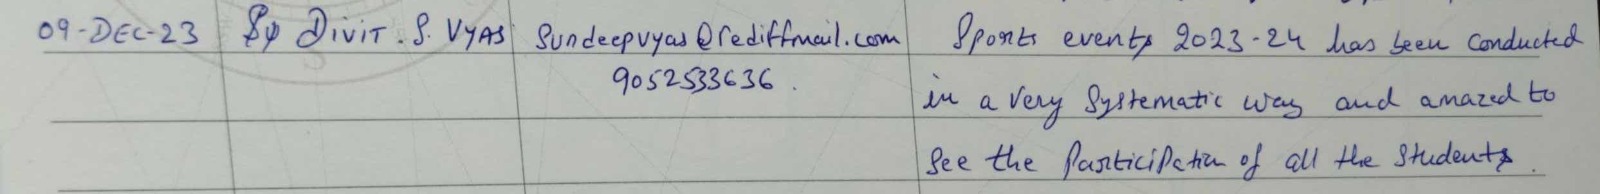 09-DEC-23 DIVIT. S. VYAS Sundeepvyas@rediffmail.com Sports events 2023-24 has been conducted
9052533636. in a very Systematic way and amazed to
See the Participation of all the Students.